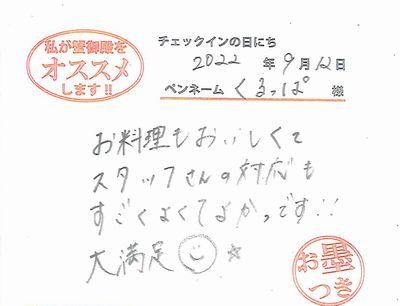 私が蟹御殿を
オススメ
します!!
チェックインの日にち
2022 年 9 月 12 日
ペンネーム くるっぱ 様
お料理もおいしくて
スタッフさんの対応も
すごくよくてよかっです!!
大満足
お墨
つき